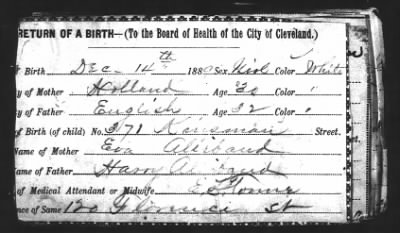 RETURN OF A BIRTH—(To the Board of Health of the City of Cleveland.)
Birth Dec 14th 188 Sex Girl Color White
y of Mother Holland Age 30 Color "
y of Father English Age 32 Color "
of Birth (of child) No. 371 Kinsman Street.
Name of Mother Eva
ame of Father Harry
of Medical Attendant or Midwife E
nce of Same 120 Florence St